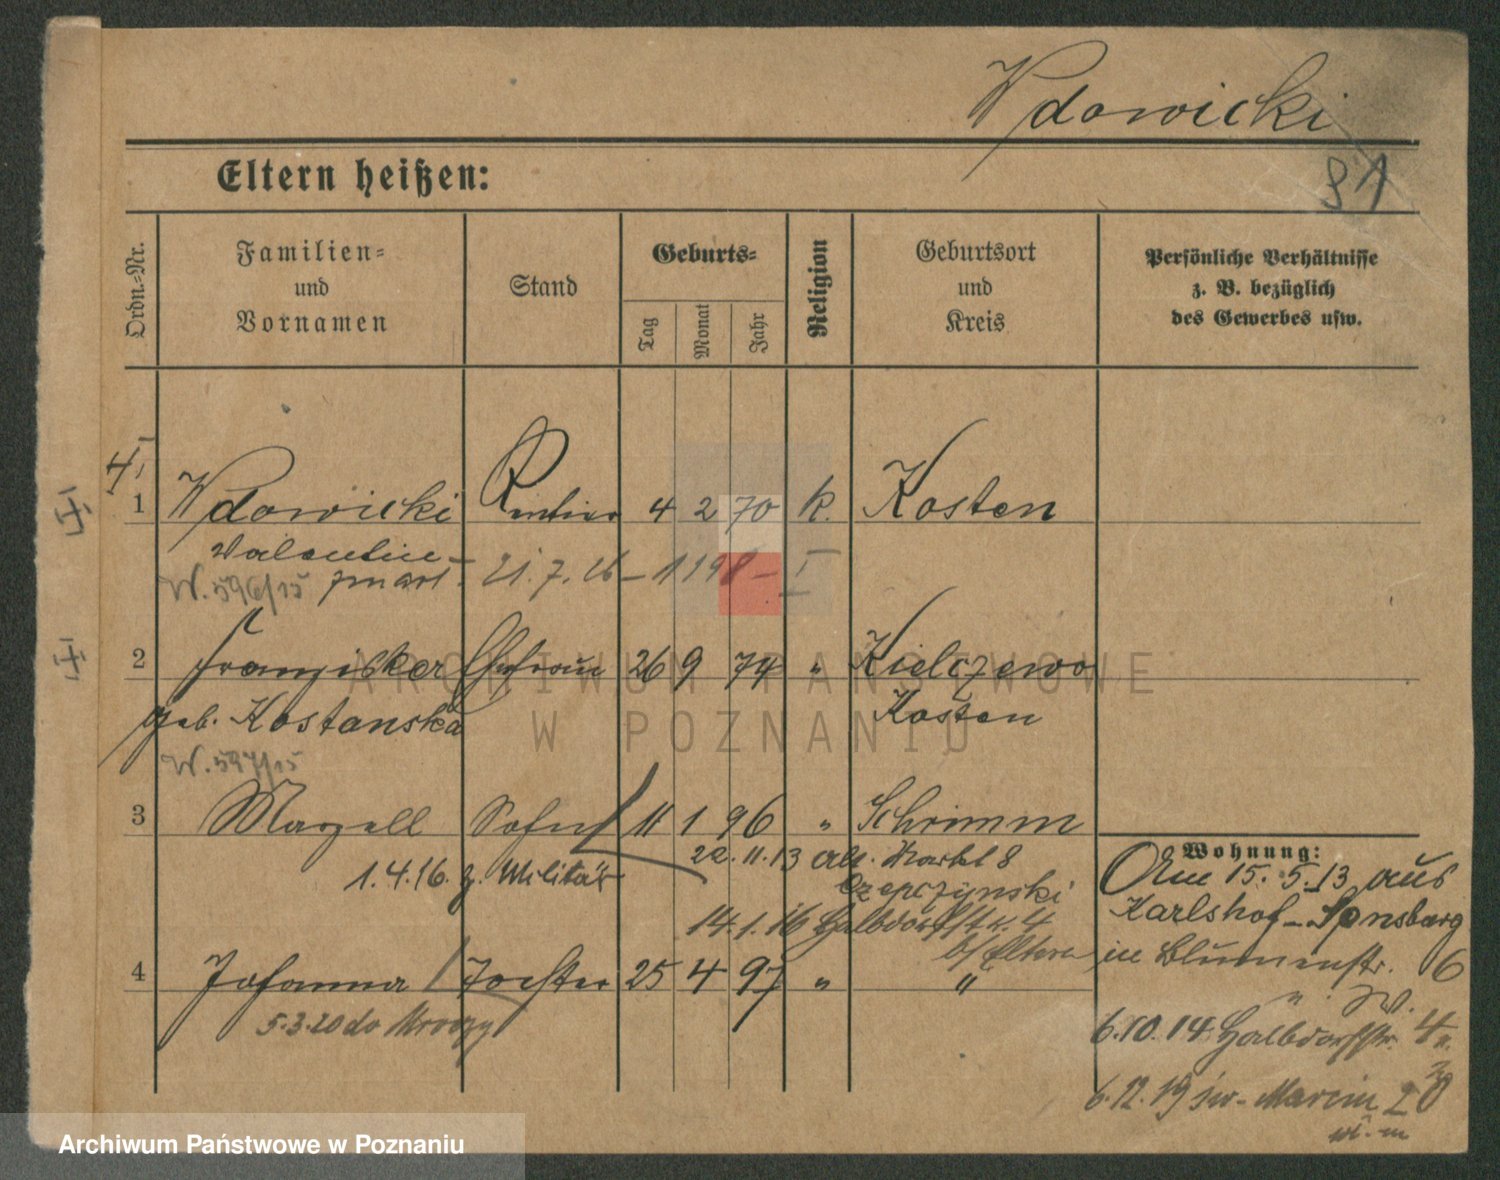 Wdowicki
Eltern heißen:
Ordn.-Nr.
Familien-
und
Vornamen
Stand
Geburts-
Tag
Monat
Jahr
Religion
Geburtsort
und
Kreis
Persönliche Verhältnisse
z. B. bezüglich
des Gewerbes usw.
1 Wdowicki Rentier 4 2 70 k. Kosten
Valentin
zmarł 21.7.26 – 1198 – I
W. 596/15
2 Franziska Ehefrau 26 9 74 " Kielczewo
geb. Kostanska Kosten
W. 597/15
3 Mazell Sohn 11 1 96 " Schrimm
22.11.13 alt. Markt 8
1.4.16. z. Militär
Czepczynski
14.1.16 Halbdorfstr. 4
b/ Eltern
4 Johanna Tochter 25 4 97 " "
5.3.20 do
Wohnung:
Am 15.5.13 aus
Karlshof-
in Blumenstr. 6
6.10.14 Halbdorfstr. 4
6.12.19 św. Marcin
ARCHIWUM PAŃSTWOWE
W POZNANIU
Archiwum Państwowe w Poznaniu